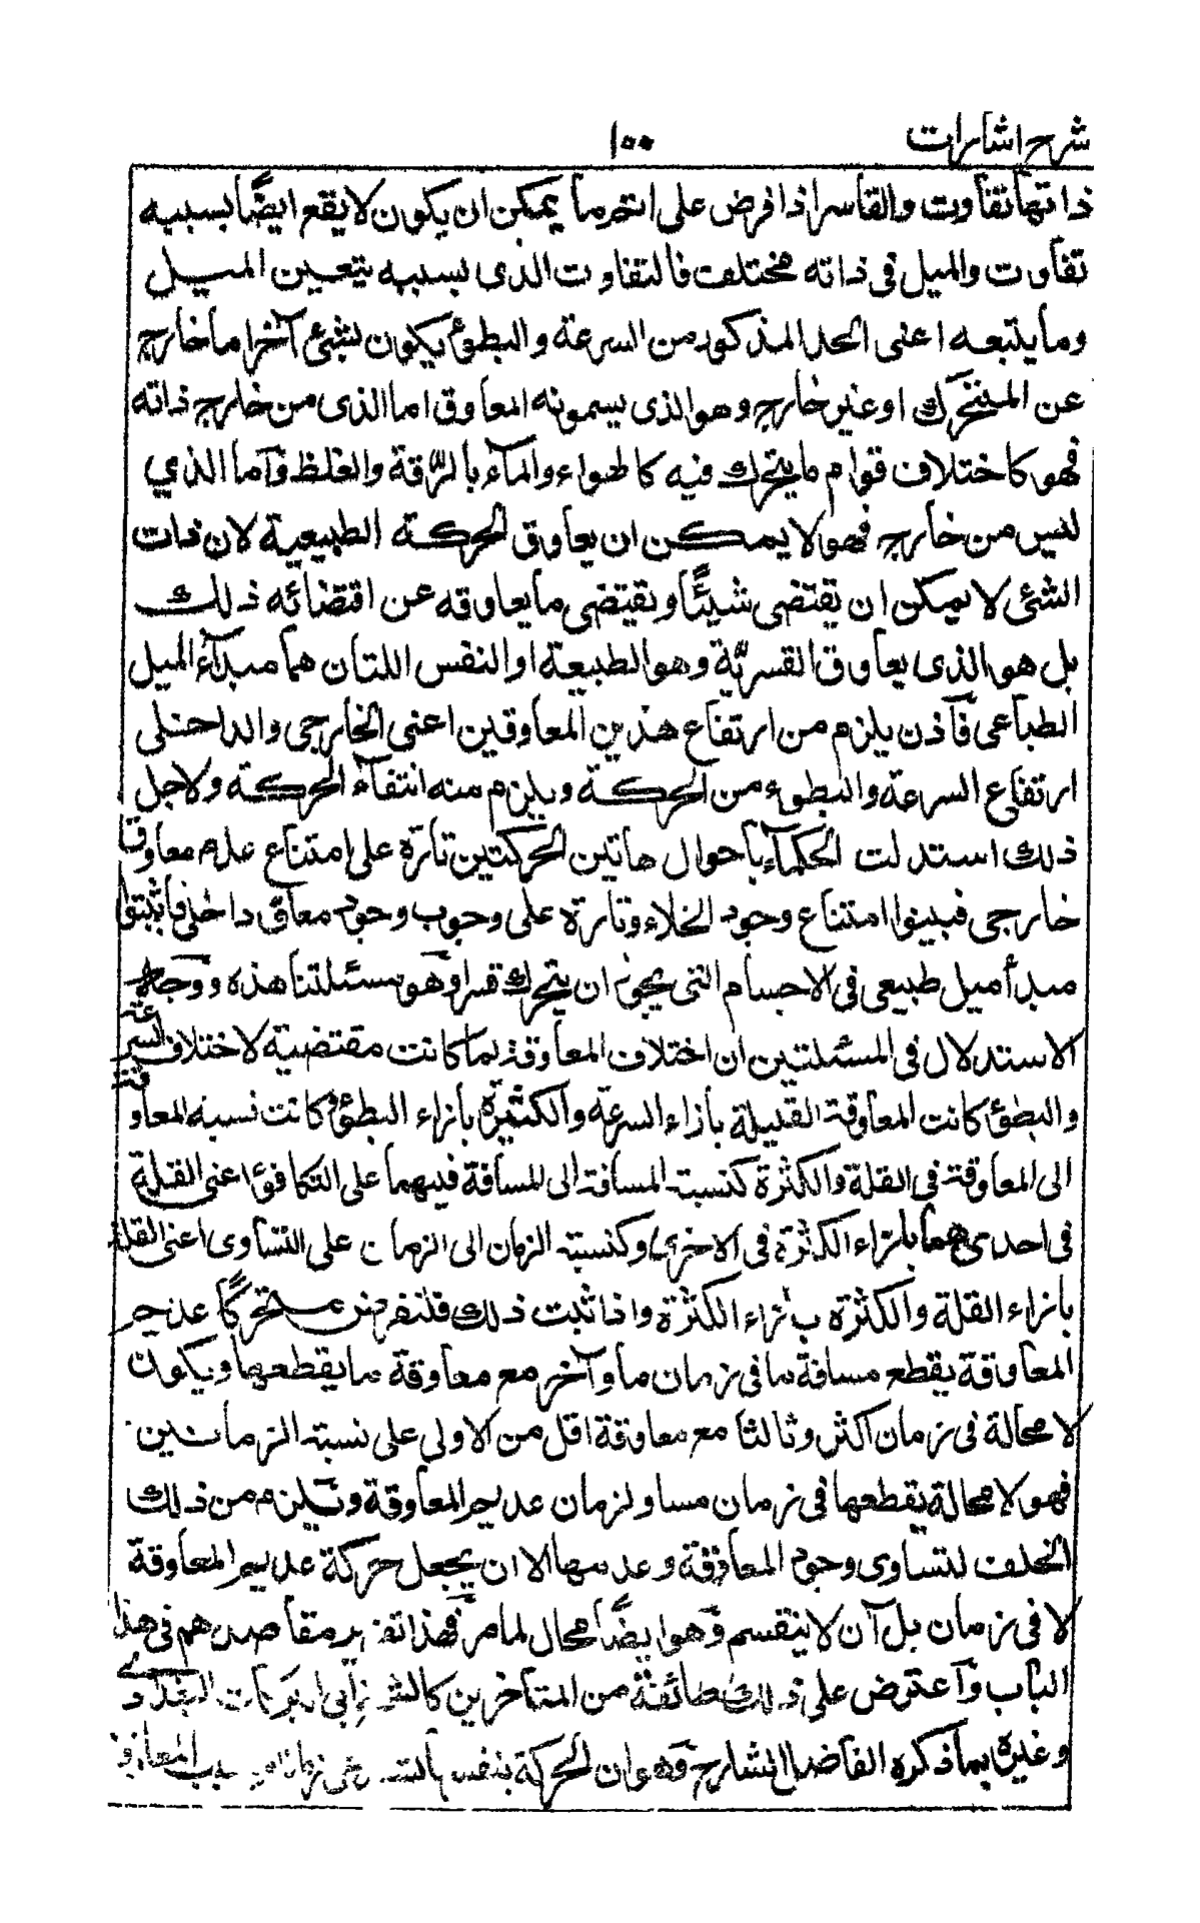 شرح اشارات
١٠٠
ذاتها تفاوت والقاسر اذا فرض على اتم ما يمكن ان يكون لا يقع ايضًا بسببه
تفاوت والميل فى ذاته مختلف فالتفاوت الذى بسببه يتعين الميل
وما يتبعه اعنى الحد المذكور من السرعة والبطوء يكون لشىء آخر اما خارج
عن المتحرك او غير خارج وهو الذى يسمونه المعاوق اما الذى من خارج ذاته
فهو كاختلاف قوام ما يتحرك فيه كالهواء والمآء بالرّقة والغلظ وآما الذي
ليس من خارج فهو لا يمكن ان يعاوق الحركة الطبيعية لان ذات
الشئ لا يمكن ان يقتضى شيئًا ويقتضى ما يعاوقه عن اقتضائه ذلك
بل هو الذى يعاوق القسريّة وهو الطبيعة او النفس اللتان هما مبدآء الميل
الطباعى فآذن يلزم من ارتفاع هذين المعاوقين اعنى الخارجى والداخلى
ارتفاع السرعة والبطوء من الحركة ويلزم منه انتفآء الحركة ولاجل
ذلك استدلت الحكمآء باحوال هاتين الحركتين تارة على امتناع عدم معاوق
خارجى فبينوا امتناع وجود الخلاء وتارة على وجوب وجود معاوق داخلى فاثبتوا
مبدأ ميل طبيعى فى الاجسام التى يجوز ان يتحرك قسرا وهو مسئلتنا هذه ووجه
الاستدلال فى المسئلتين ان اختلاف المعاوقة لما كانت مقتضية لاختلاف السرعة
والبطؤ كانت المعاوقة القليلة بازاء السرعة والكثيرة بازاء البطؤ فكانت نسبة المعاوقة
الى المعاوقة فى القلة والكثرة كنسبة المسافة الى المسافة فيهما على التكافؤ اعنى القلة
فى احدىهما بازاء الكثرة فى الاخرى وكنسبة الزمان الى الزمان على التساوى اعنى القلة
بازاء القلة والكثرة بازاء الكثرة واذا ثبت ذلك فلنفرض متحركًا عديم
المعاوقة يقطع مسافة ما فى زمان ما وآخر مع معاوقة ما يقطعها ويكون
لا محالة فى زمان اكثر وثالثا مع معاوقة اقل من الاولى على نسبة الزمانين
فهو لا محالة يقطعها فى زمان مساو لزمان عديم المعاوقة ويلزم من ذلك
الخلف لتساوى وجود المعاوقة وعدمها الا ان يجعل حركة عديم المعاوقة
لا فى زمان بل آن لا ينقسم وهو ايضًا محال لما مر فهذا تقرير مقاصدهم فى هذا
الباب وآعترض على ذلك طائفة من المتأخرين كالشيخ ابى البركات البغدادى
وغيره بما ذكره الفاضل الشارح وهو ان الحركة بنفسها تستدعى زمانا وبسبب المعاوقة